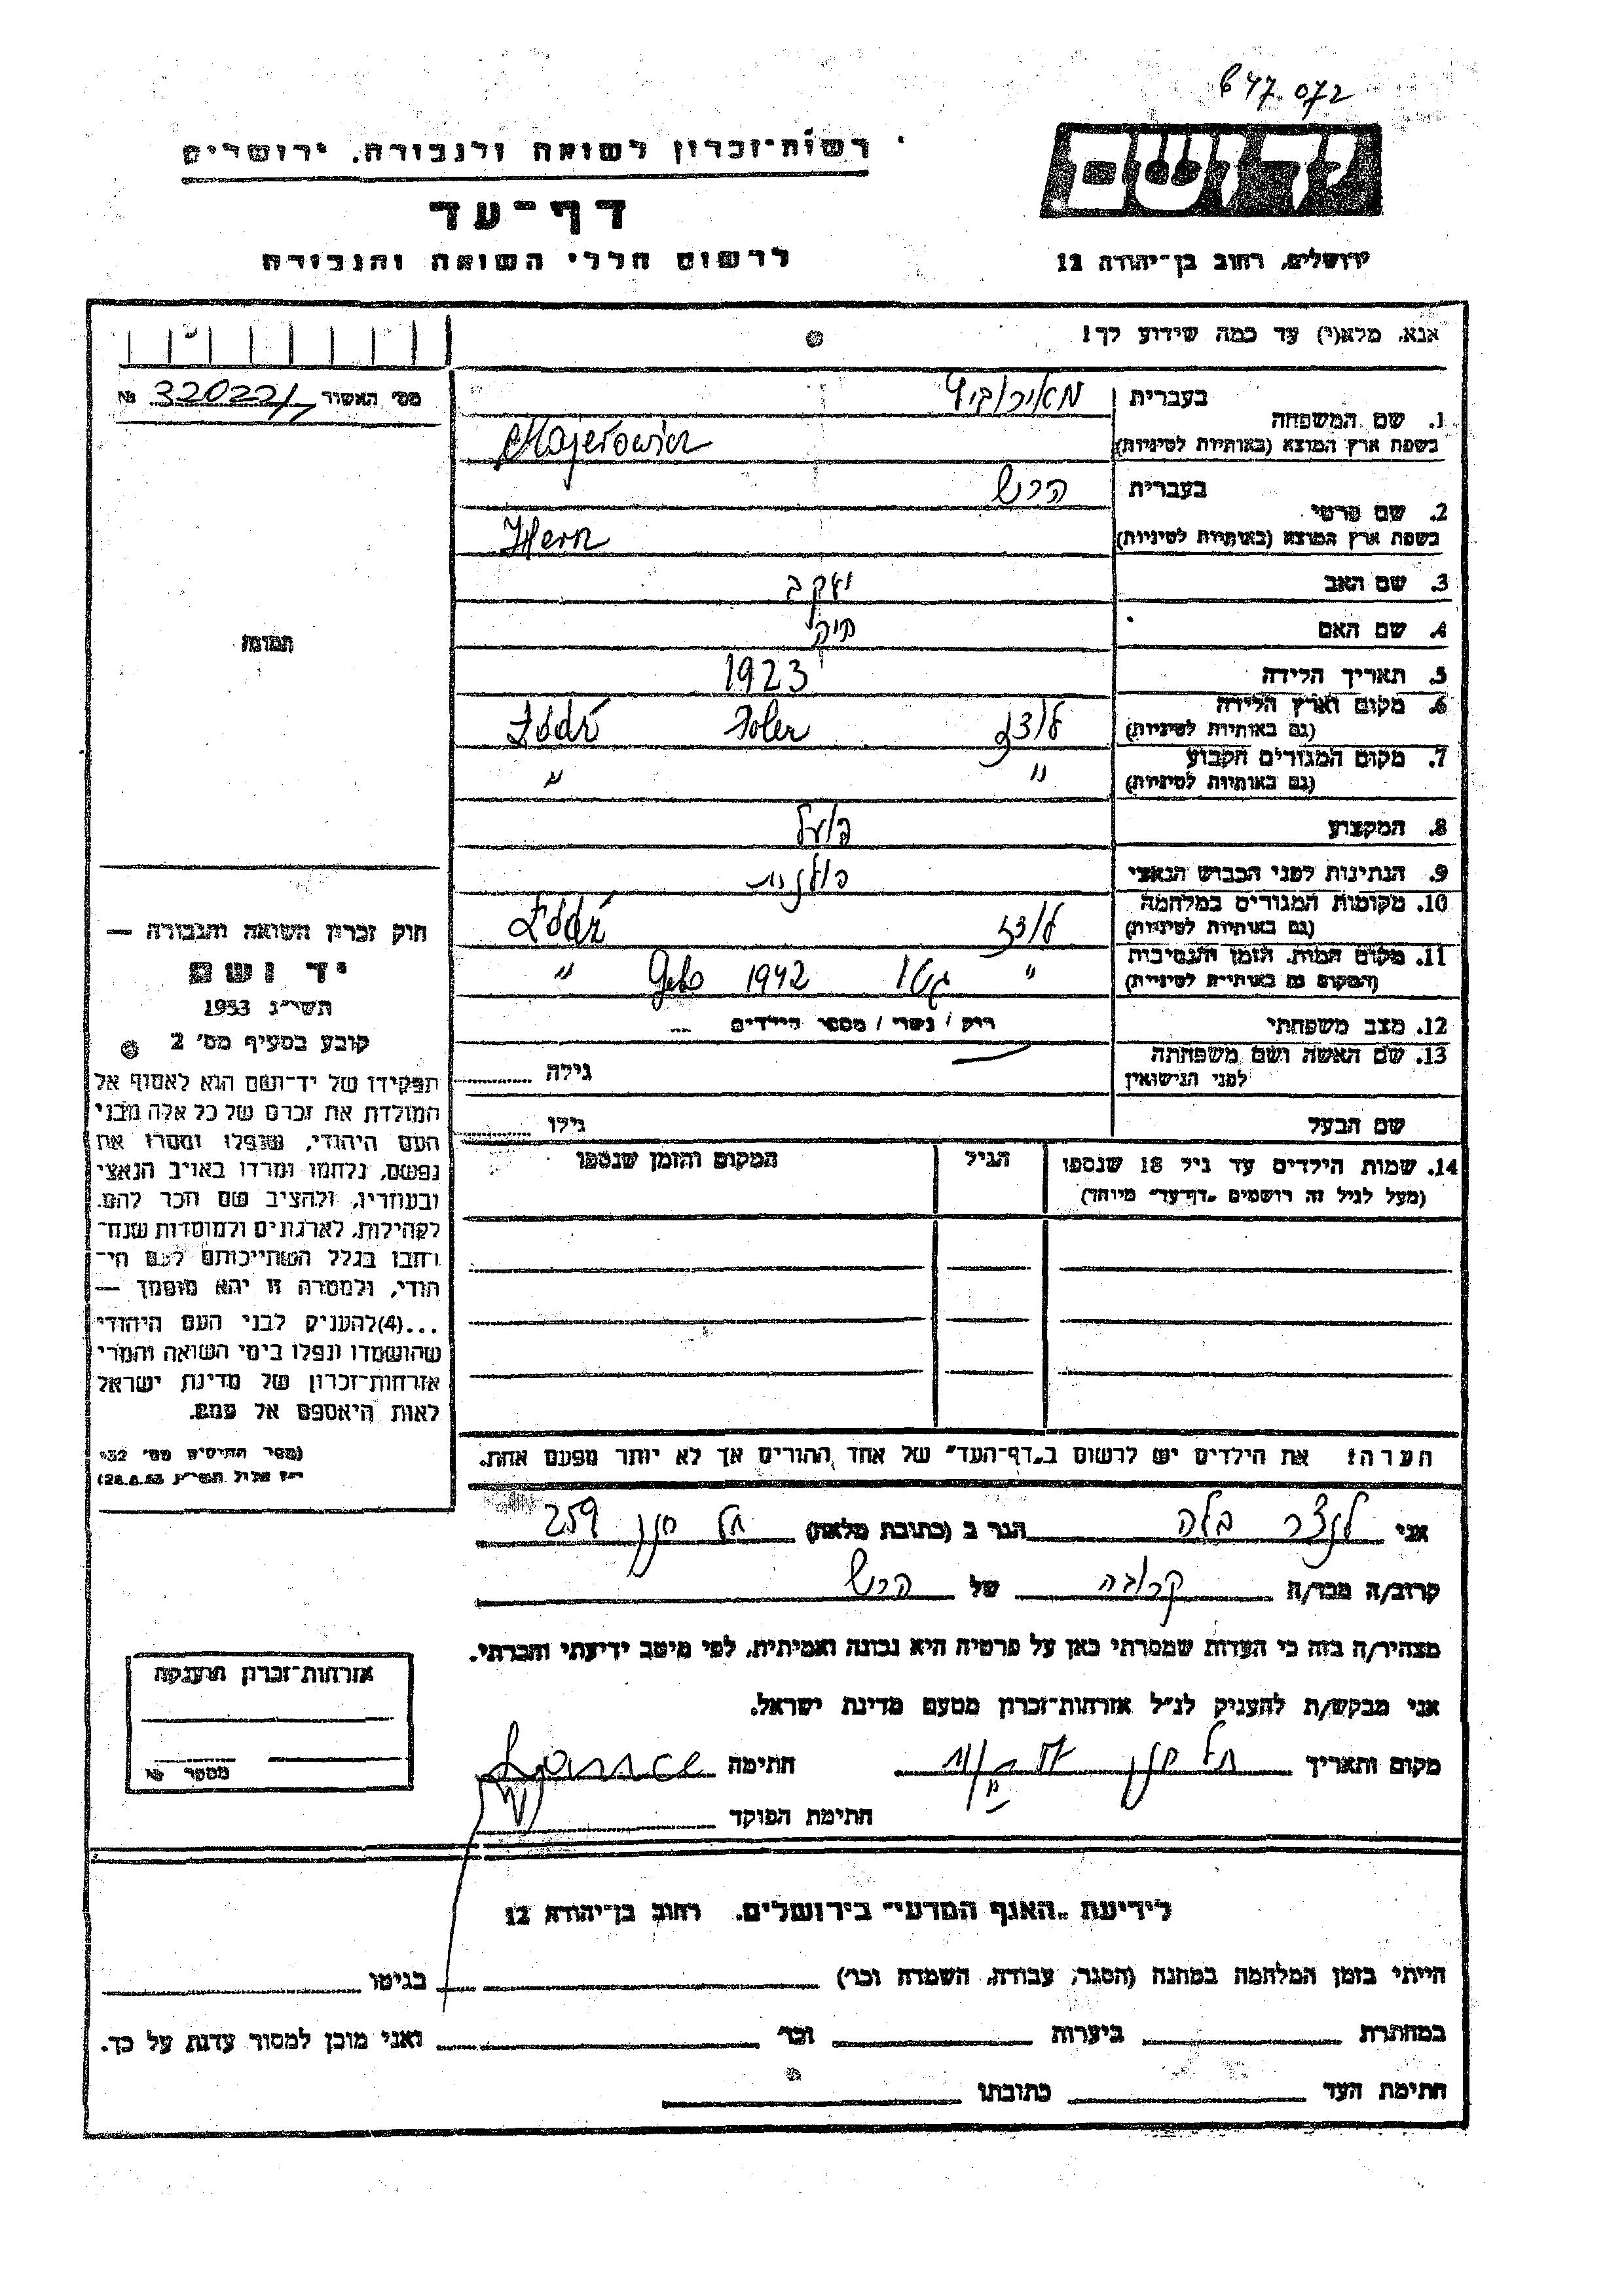 647.072
רשות-זכרון לשואה ולגבורה, ירושלים
דף-עד
לרשום חללי השואה והגבורה
יד ושם
ירושלים, רחוב בן-יהודה 12
אנא, מלא(י) עד כמה שידוע לך!
מס' האשור № 32022/
1. שם המשפחה
בעברית מאירוביץ
בשפת ארץ המוצא (באותיות לטיניות) Majerowicz
2. שם פרטי
בעברית הרש
בשפת ארץ המוצא (באותיות לטיניות)
3. שם האב יעקב
4. שם האם
5. תאריך הלידה 1923
6. מקום וארץ הלידה לודז Łódź
(גם באותיות לטיניות)
7. מקום המגורים הקבוע " "
(גם באותיות לטיניות)
8. המקצוע פועל
9. הנתינות לפני הכבוש הנאצי פולנית
10. מקומות המגורים במלחמה לודז Łódź
(גם באותיות לטיניות)
11. מקום המות, הזמן והנסיבות " גטו 1942 Geto "
(המקום גם באותיות לטיניות)
12. מצב משפחתי רוק / נשוי / מספר הילדים ...
13. שם האשה ושם משפחתה
לפני הנישואין
גילה
שם הבעל גילו
14. שמות הילדים עד גיל 18 שנספו
(מעל לגיל זה רושמים „דף-עד" מיוחד)
הגיל
המקום והזמן שנספו
הערה! את הילדים יש לרשום ב„דף-העד" של אחד ההורים אך לא יותר מפעם אחת.
תמונה
חוק זכרון השואה והגבורה —
יד ושם
תשי"ג 1953
קובע בסעיף מס' 2
תפקידו של יד-ושם הוא לאסוף אל
המולדת את זכרם של כל אלה מבני
העם היהודי, שנפלו ומסרו את
נפשם, נלחמו ומרדו באויב הנאצי
ובעוזריו, ולהציב שם וזכר להם,
לקהילות, לארגונים ולמוסדות שנח-
רבו בגלל השתייכותם לעם הי-
הודי, ולמטרה זו יהא מוסמך —
...(4) להעניק לבני העם היהודי
שהושמדו ונפלו בימי השואה והמרי
אזרחות-זכרון של מדינת ישראל
לאות היאספם אל עמם.
(ספר החוקים מס' 132
י"ז אלול תשי"ג 28.8.53)
אני לנצר בלה הגר ב (כתובת מלאה) תל חנן 259
קרוב/ה מכר/ה קרובה של הרש
מצהיר/ה בזה כי העדות שמסרתי כאן על פרטיה היא נכונה ואמיתית, לפי מיטב ידיעתי והכרתי.
אני מבקש/ת להעניק לנ"ל אזרחות-זכרון מטעם מדינת ישראל.
מקום ותאריך תל חנן חתימה
חתימת הפוקד
אזרחות-זכרון הוענקה
מספר №
לידיעת „האגף המדעי" בירושלים, רחוב בן-יהודה 12
הייתי בזמן המלחמה במחנה (הסגר, עבודת, השמדה וכו') בגיטו
במחתרת ביערות וכו' ואני מוכן למסור עדות על כך.
חתימת העד כתובתו